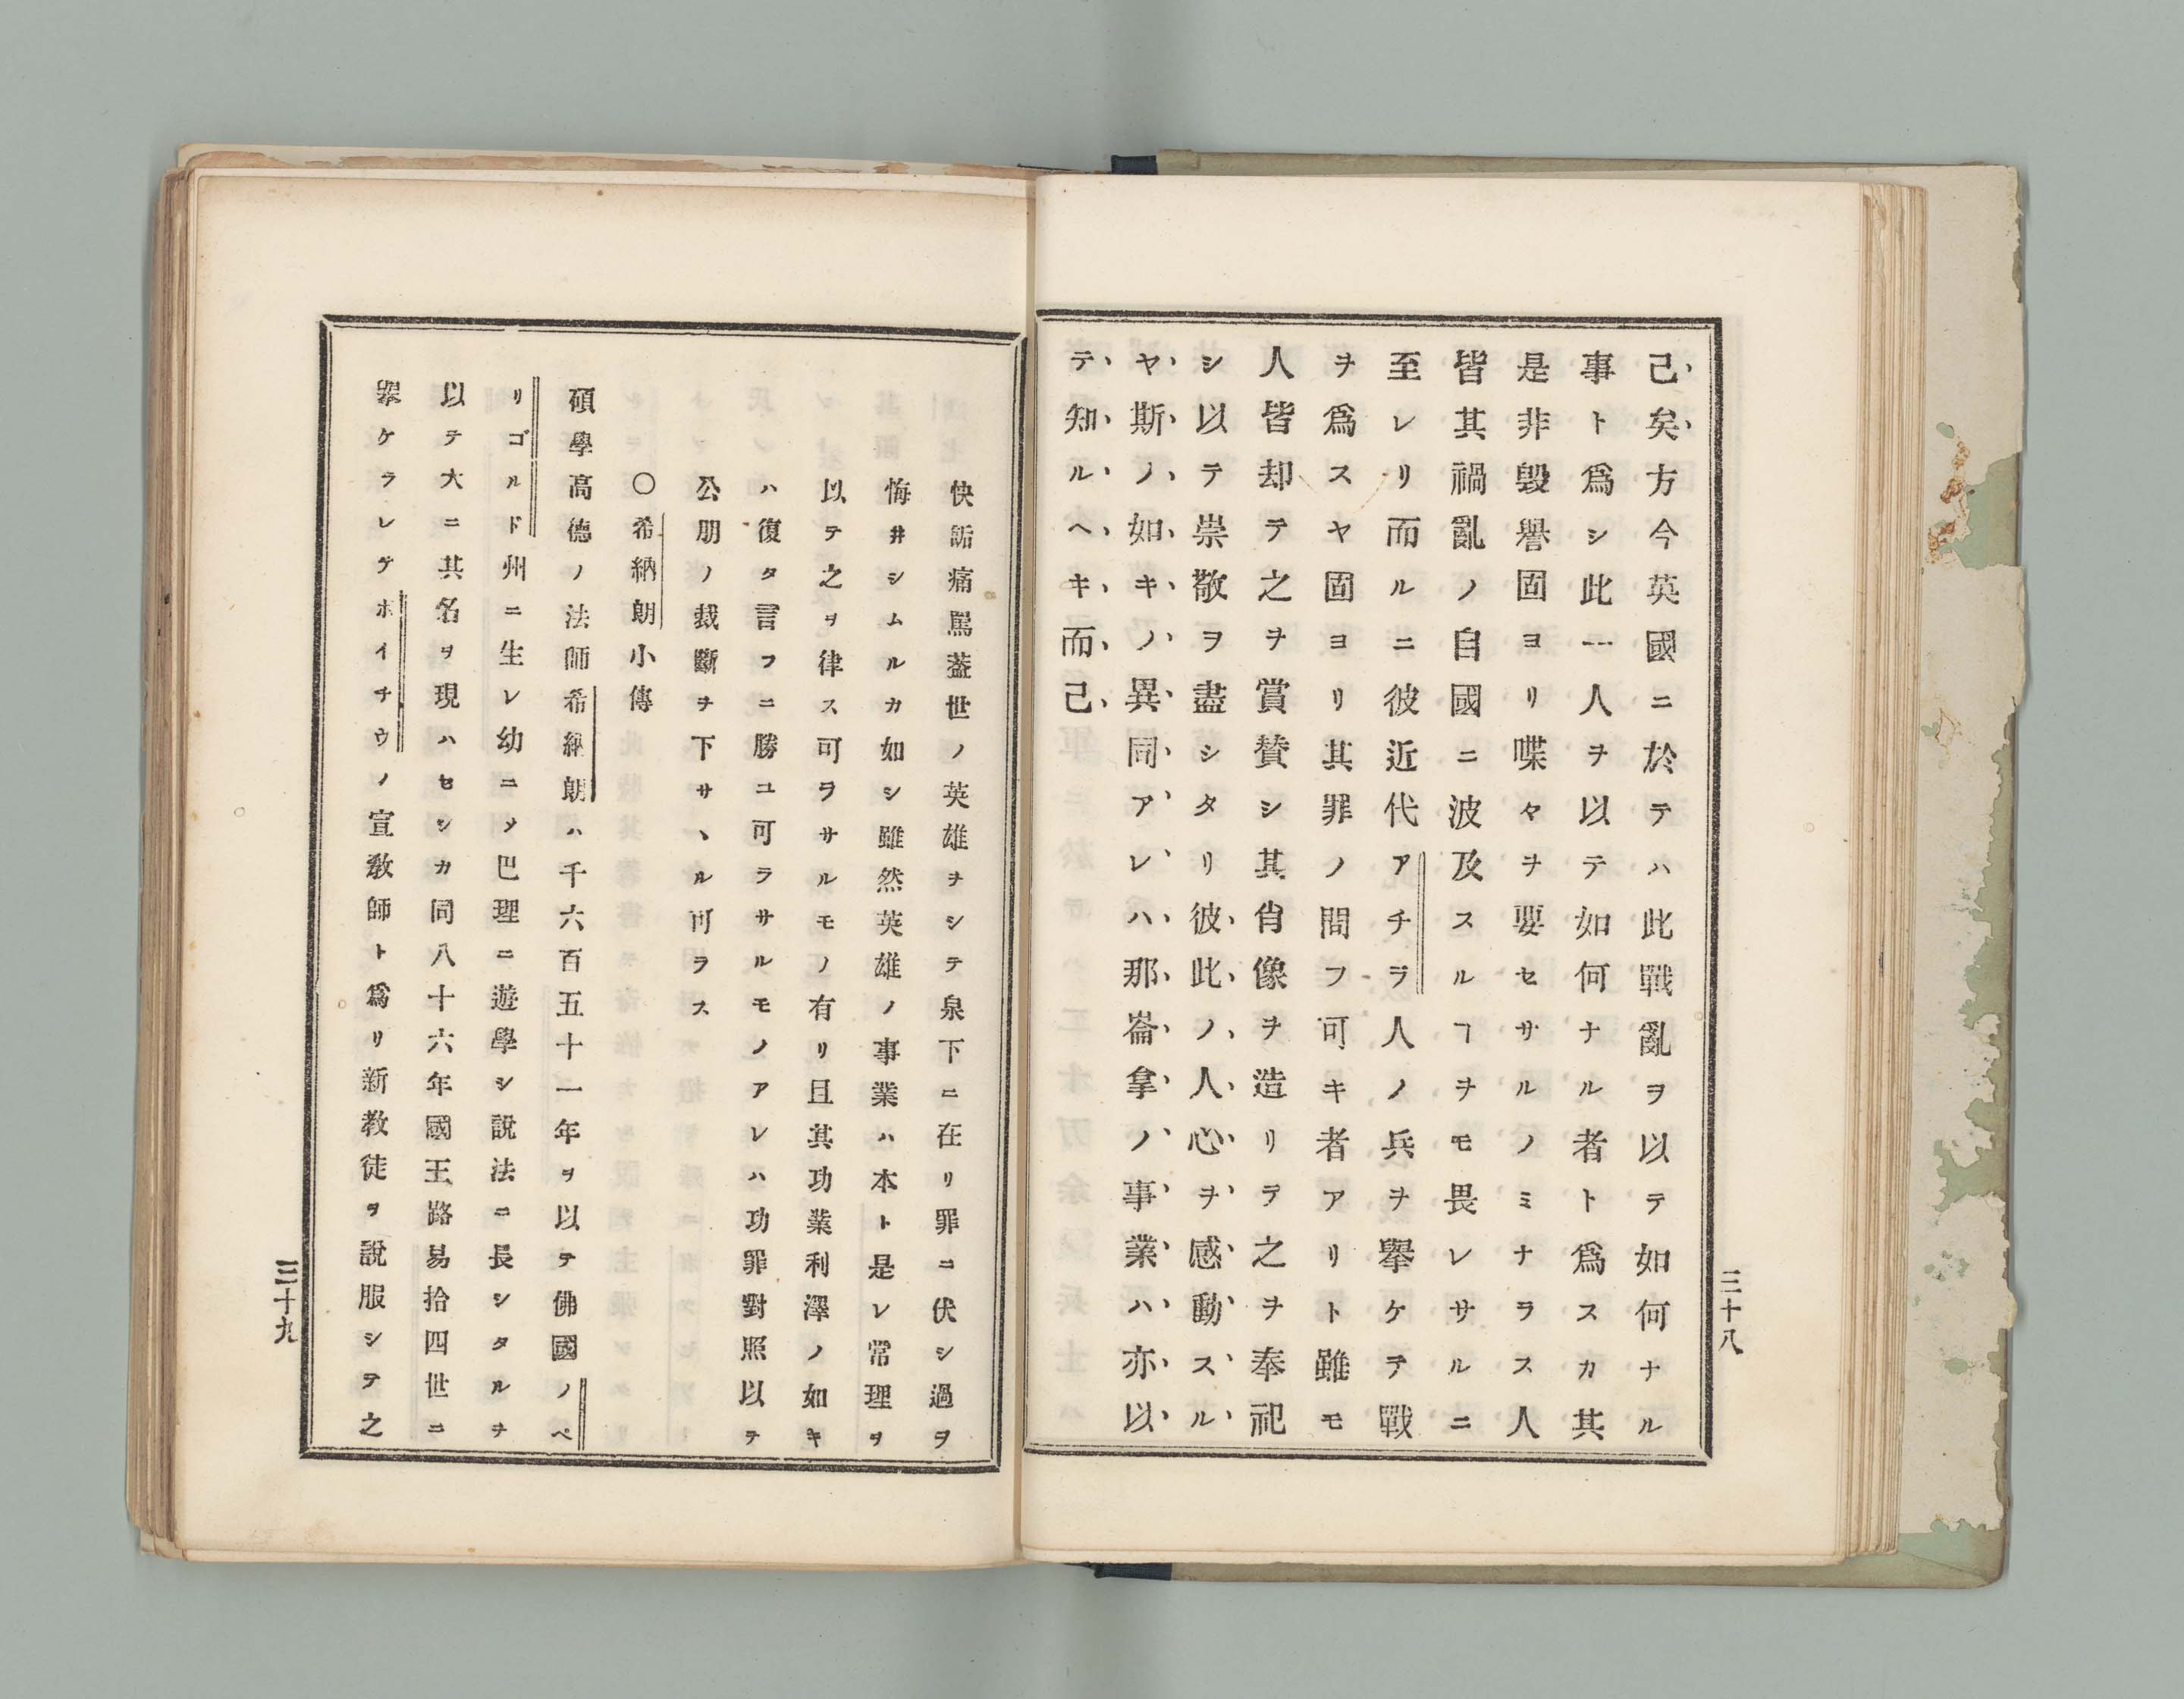 己矣方今英國ニ於テハ此戰亂ヲ以テ如何ナル
事ト爲シ此一人ヲ以テ如何ナル者ト爲スカ其
是非毀譽固ヨリ喋々ヲ要セサルノミナラス人
皆其禍亂ノ自國ニ波及スルヿヲモ畏レサルニ
至レリ而ルニ彼近代アチラ人ノ兵ヲ擧ケテ戰
ヲ爲スヤ固ヨリ其罪ノ問フ可キ者アリト雖モ
人皆却テ之ヲ賞賛シ其肖像ヲ造リテ之ヲ奉祀
シ以テ崇敬ヲ盡シタリ彼此ノ人心ヲ感動スル
ヤ斯ノ如キノ異同アレハ那崙拿ノ事業ハ亦以
テ知ルヘキ而己
三十八
快詬痛罵蓋世ノ英雄ヲシテ泉下ニ在リ罪ニ伏シ過ヲ
悔井シムルカ如シ雖然英雄ノ事業ハ本ト是レ常理ヲ
以テ之ヲ律ス可ヲサルモノ有リ且其功業利澤ノ如キ
ハ復タ言フニ勝ユ可ラサルモノアレハ功罪對照以テ
公朋ノ裁斷ヲ下サヽル可ラス
〇希納朗小傳
碩學高德ノ法師希納朗ハ千六百五十一年ヲ以テ佛國ノペ
リゴルド州ニ生レ幼ニメ巴理ニ遊學シ說法ニ長シタルヲ
以テ大ニ其名ヲ現ハセシカ同八十六年國王路易拾四世ニ
擧ケラレテホイチウノ宣敎師ト爲リ新敎徒ヲ說服シテ之
三十九